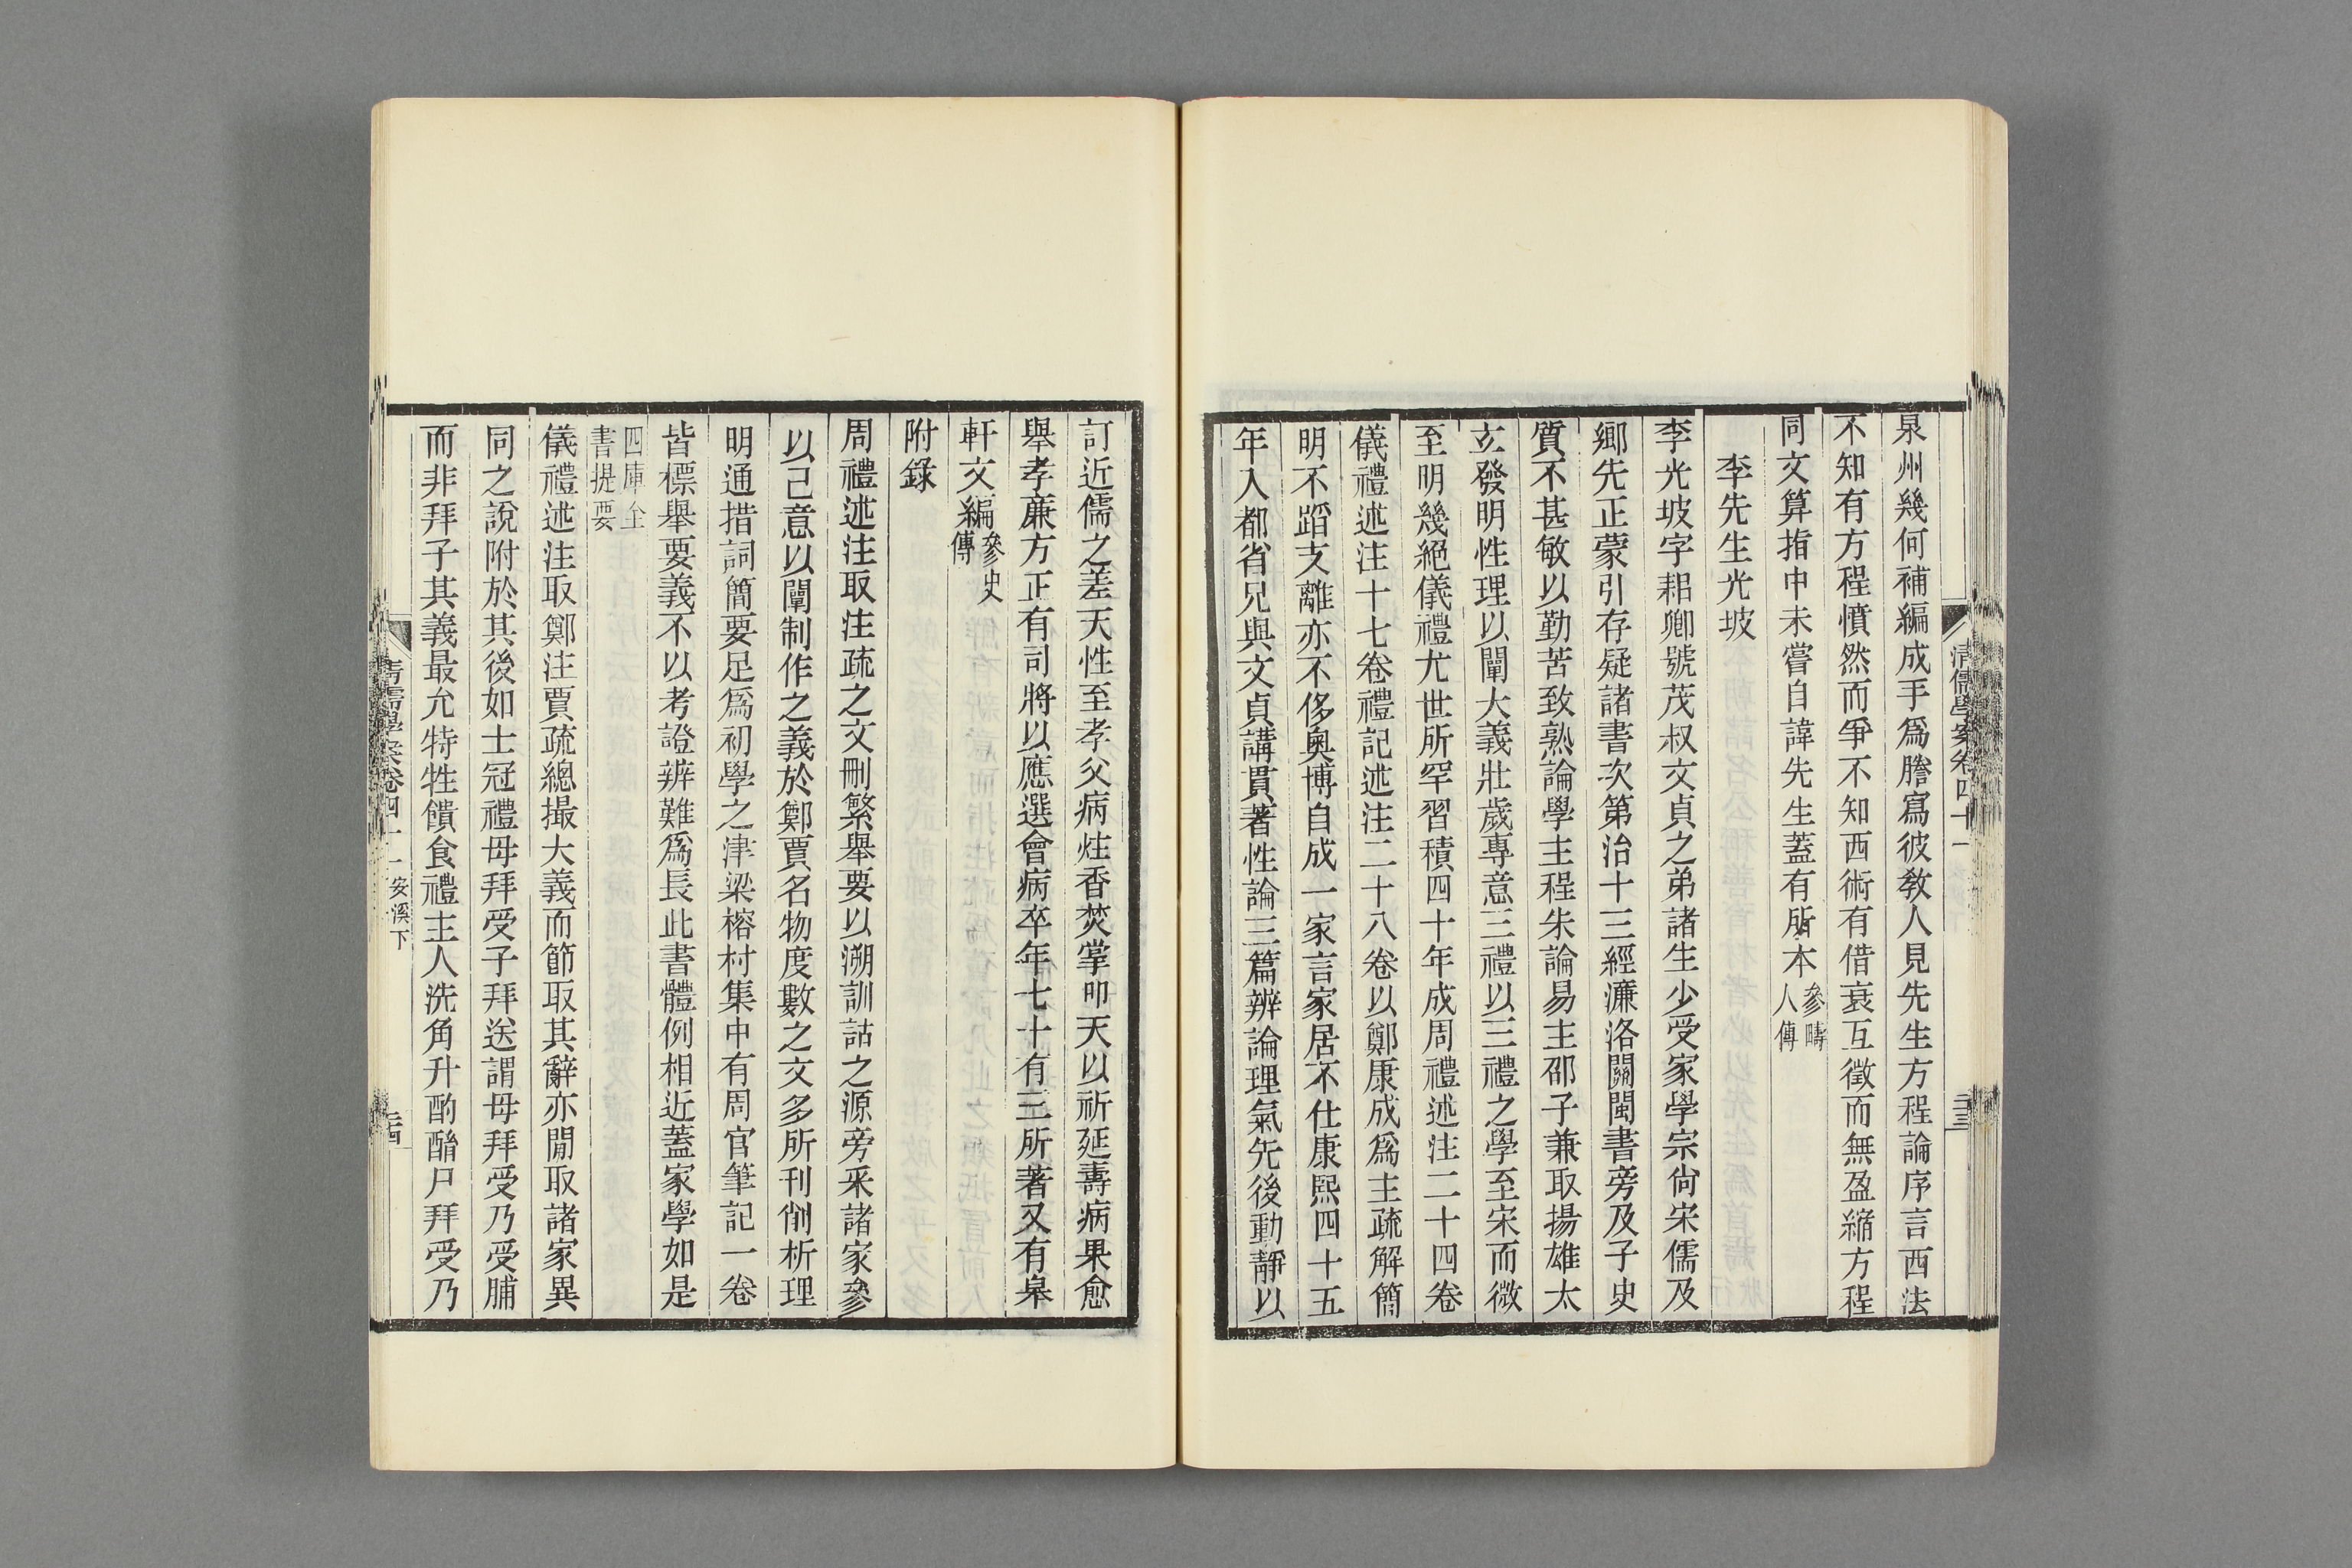 泉州幾何補編成手爲謄寫彼敎人見先生方程論序言西法
不知有方程憤然而爭不知西術有借衰互徵而無盈縮方程
同文算指中未嘗自諱先生蓋有所本參疇人傳
李先生光坡
李光坡字耜卿號茂叔文貞之弟諸生少受家學宗尙宋儒及
鄉先正蒙引存疑諸書次第治十三經濂洛關閩書旁及子史
質不甚敏以勤苦致熟論學主程朱論易主邵子兼取揚雄太
玄發明性理以闡大義壯歲專意三禮以三禮之學至宋而微
至明幾絕儀禮尤世所罕習積四十年成周禮述注二十四卷
儀禮述注十七卷禮記述注二十八卷以鄭康成爲主疏解簡
明不蹈支離亦不侈奧博自成一家言家居不仕康熙四十五
年入都省兄與文貞講貫著性論三篇辨論理氣先後動靜以
清儒學案卷四十一
三三
訂近儒之差天性至孝父病炷香焚掌叩天以祈延壽病果愈
舉孝廉方正有司將以應選會病卒年七十有三所著又有皋
軒文編參史傳
附錄
周禮述注取注疏之文刪繁舉要以溯訓詁之源旁采諸家參
以己意以闡制作之義於鄭賈名物度數之文多所刊削析理
明通措詞簡要足爲初學之津梁榕村集中有周官筆記一卷
皆標舉要義不以考證辨難爲長此書體例相近蓋家學如是
四庫全書提要
儀禮述注取鄭注賈疏總撮大義而節取其辭亦閒取諸家異
同之說附於其後如士冠禮母拜受子拜送謂母拜受乃受脯
而非拜子其義最允特牲饋食禮主人洗角升酌酳尸拜受乃
清儒學案卷四十一 安溪下
三四